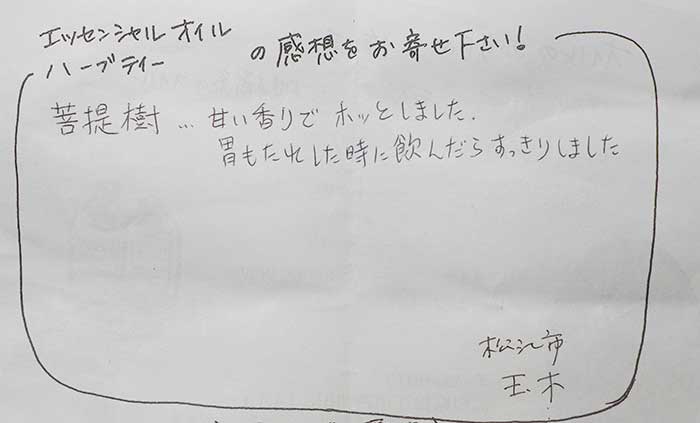 エッセンシャルオイル
ハーブティー の感想をお寄せ下さい!
菩提樹 … 甘い香りでホッとしました.
胃もたれした時に飲んだらすっきりしました
松江市
玉木